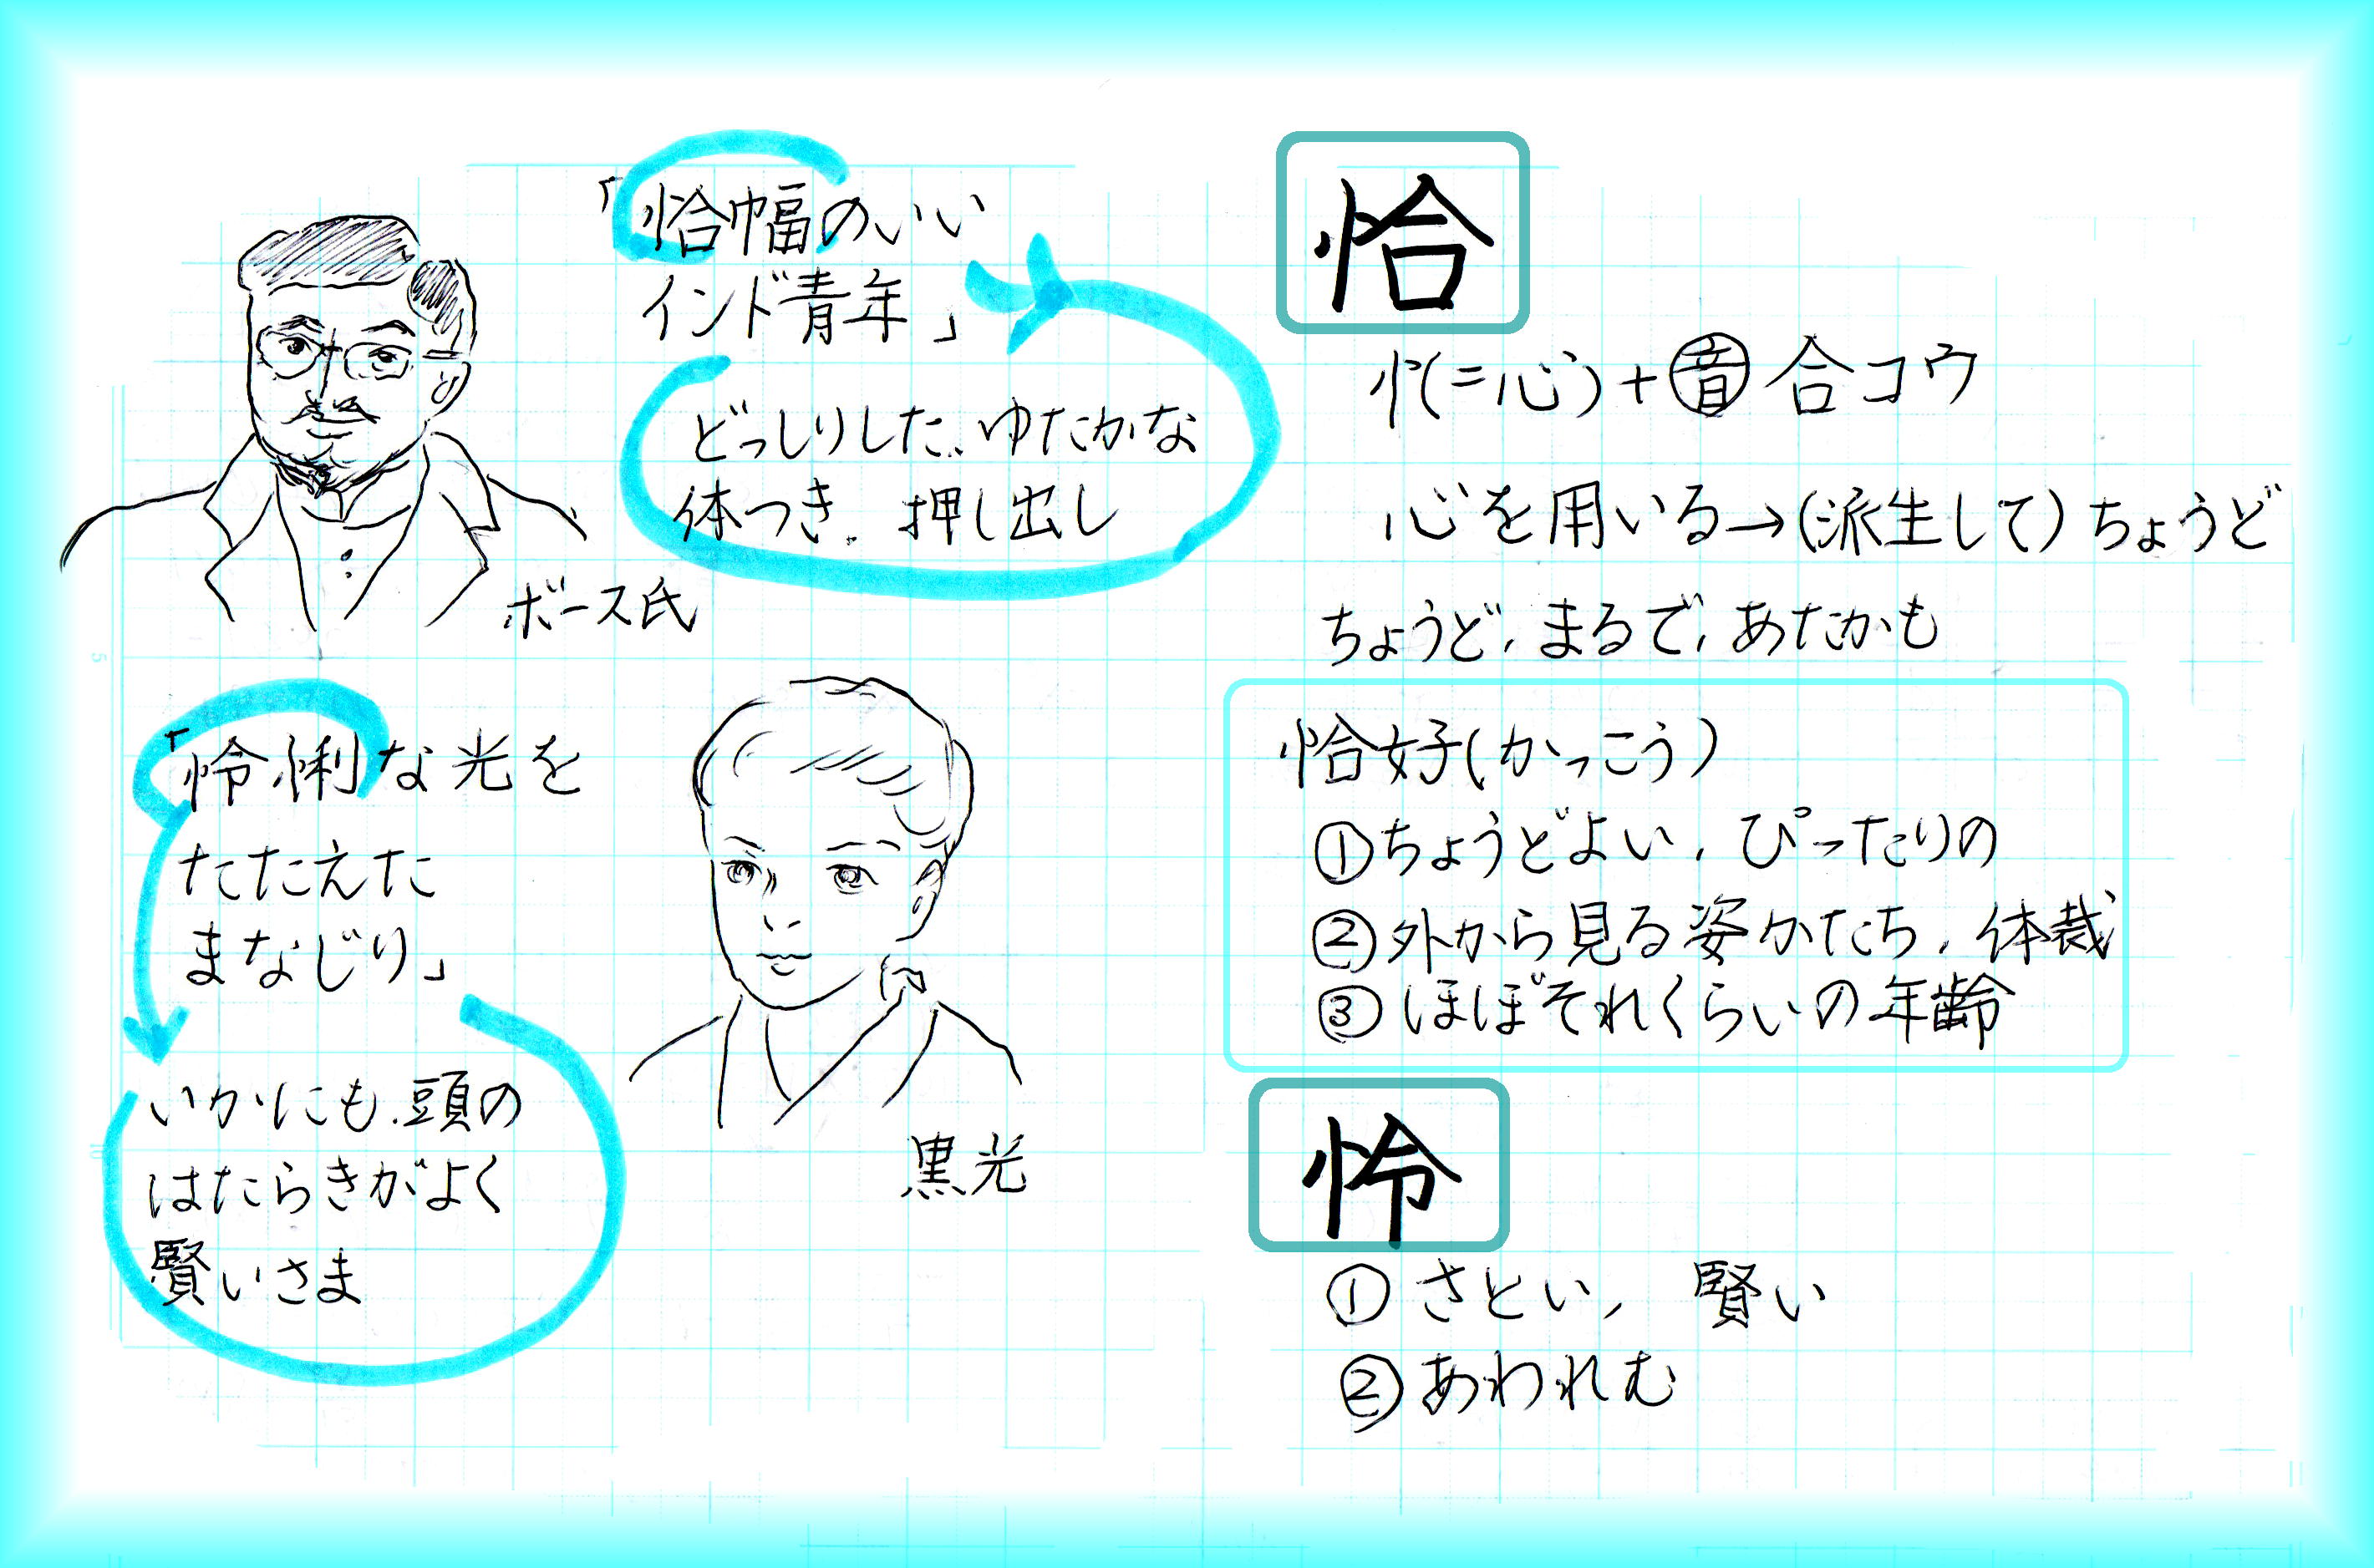 「恰幅のいい
インド青年」
どっしりした、ゆたかな
体つき、押し出し
ボース氏
「怜悧な光を
たたえた
まなじり」
いかにも、頭の
はたらきがよく
賢いさま
黒光
恰
忄(=心)+音 合コウ
心を用いる→(派生して)ちょうど
ちょうど、まるで、あたかも
恰好(かっこう)
①ちょうどよい、ぴったりの
②外から見る姿かたち、体裁
③ほぼそれくらいの年齢
怜
①さとい、賢い
②あわれむ
5
10